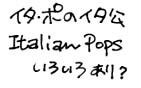 イタ・ポのイタ公
Italian Pops
いろいろあり?